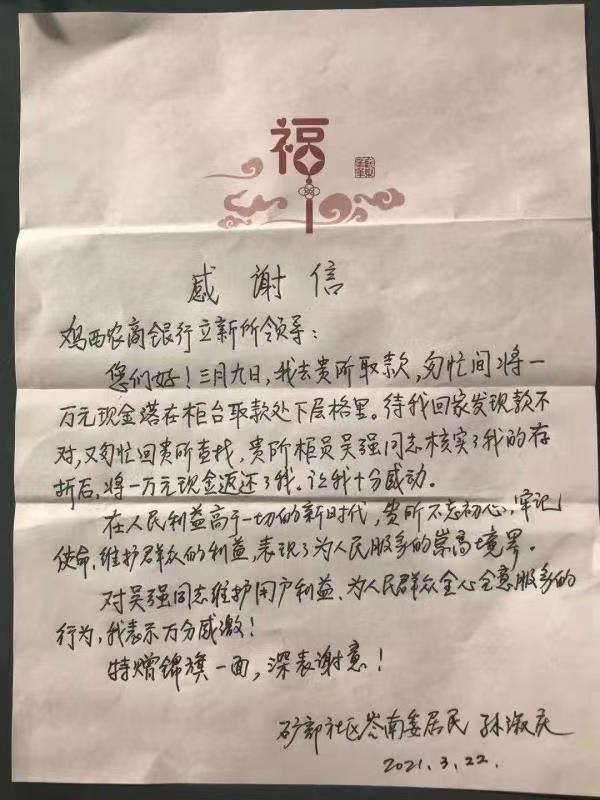 福
感谢信
鸡西农商银行立新所领导:
您们好!三月九日,我去贵所取款,匆忙间将一
万元现金落在柜台取款处下层格里。待我回家发现款不
对,又匆忙回贵所查找,贵所柜员吴强同志核实了我的存
折后,将一万元现金返还了我。让我十分感动。
在人民利益高于一切的新时代,贵所不忘初心,牢记
使命,维护群众的利益,表现了为人民服务的崇高境界。
对吴强同志维护用户利益、为人民群众全心全意服务的
行为,我表示万分感激!
特赠锦旗一面,深表谢意!
矿部社区岺南委居民 孙淑庆
2021.3.22.